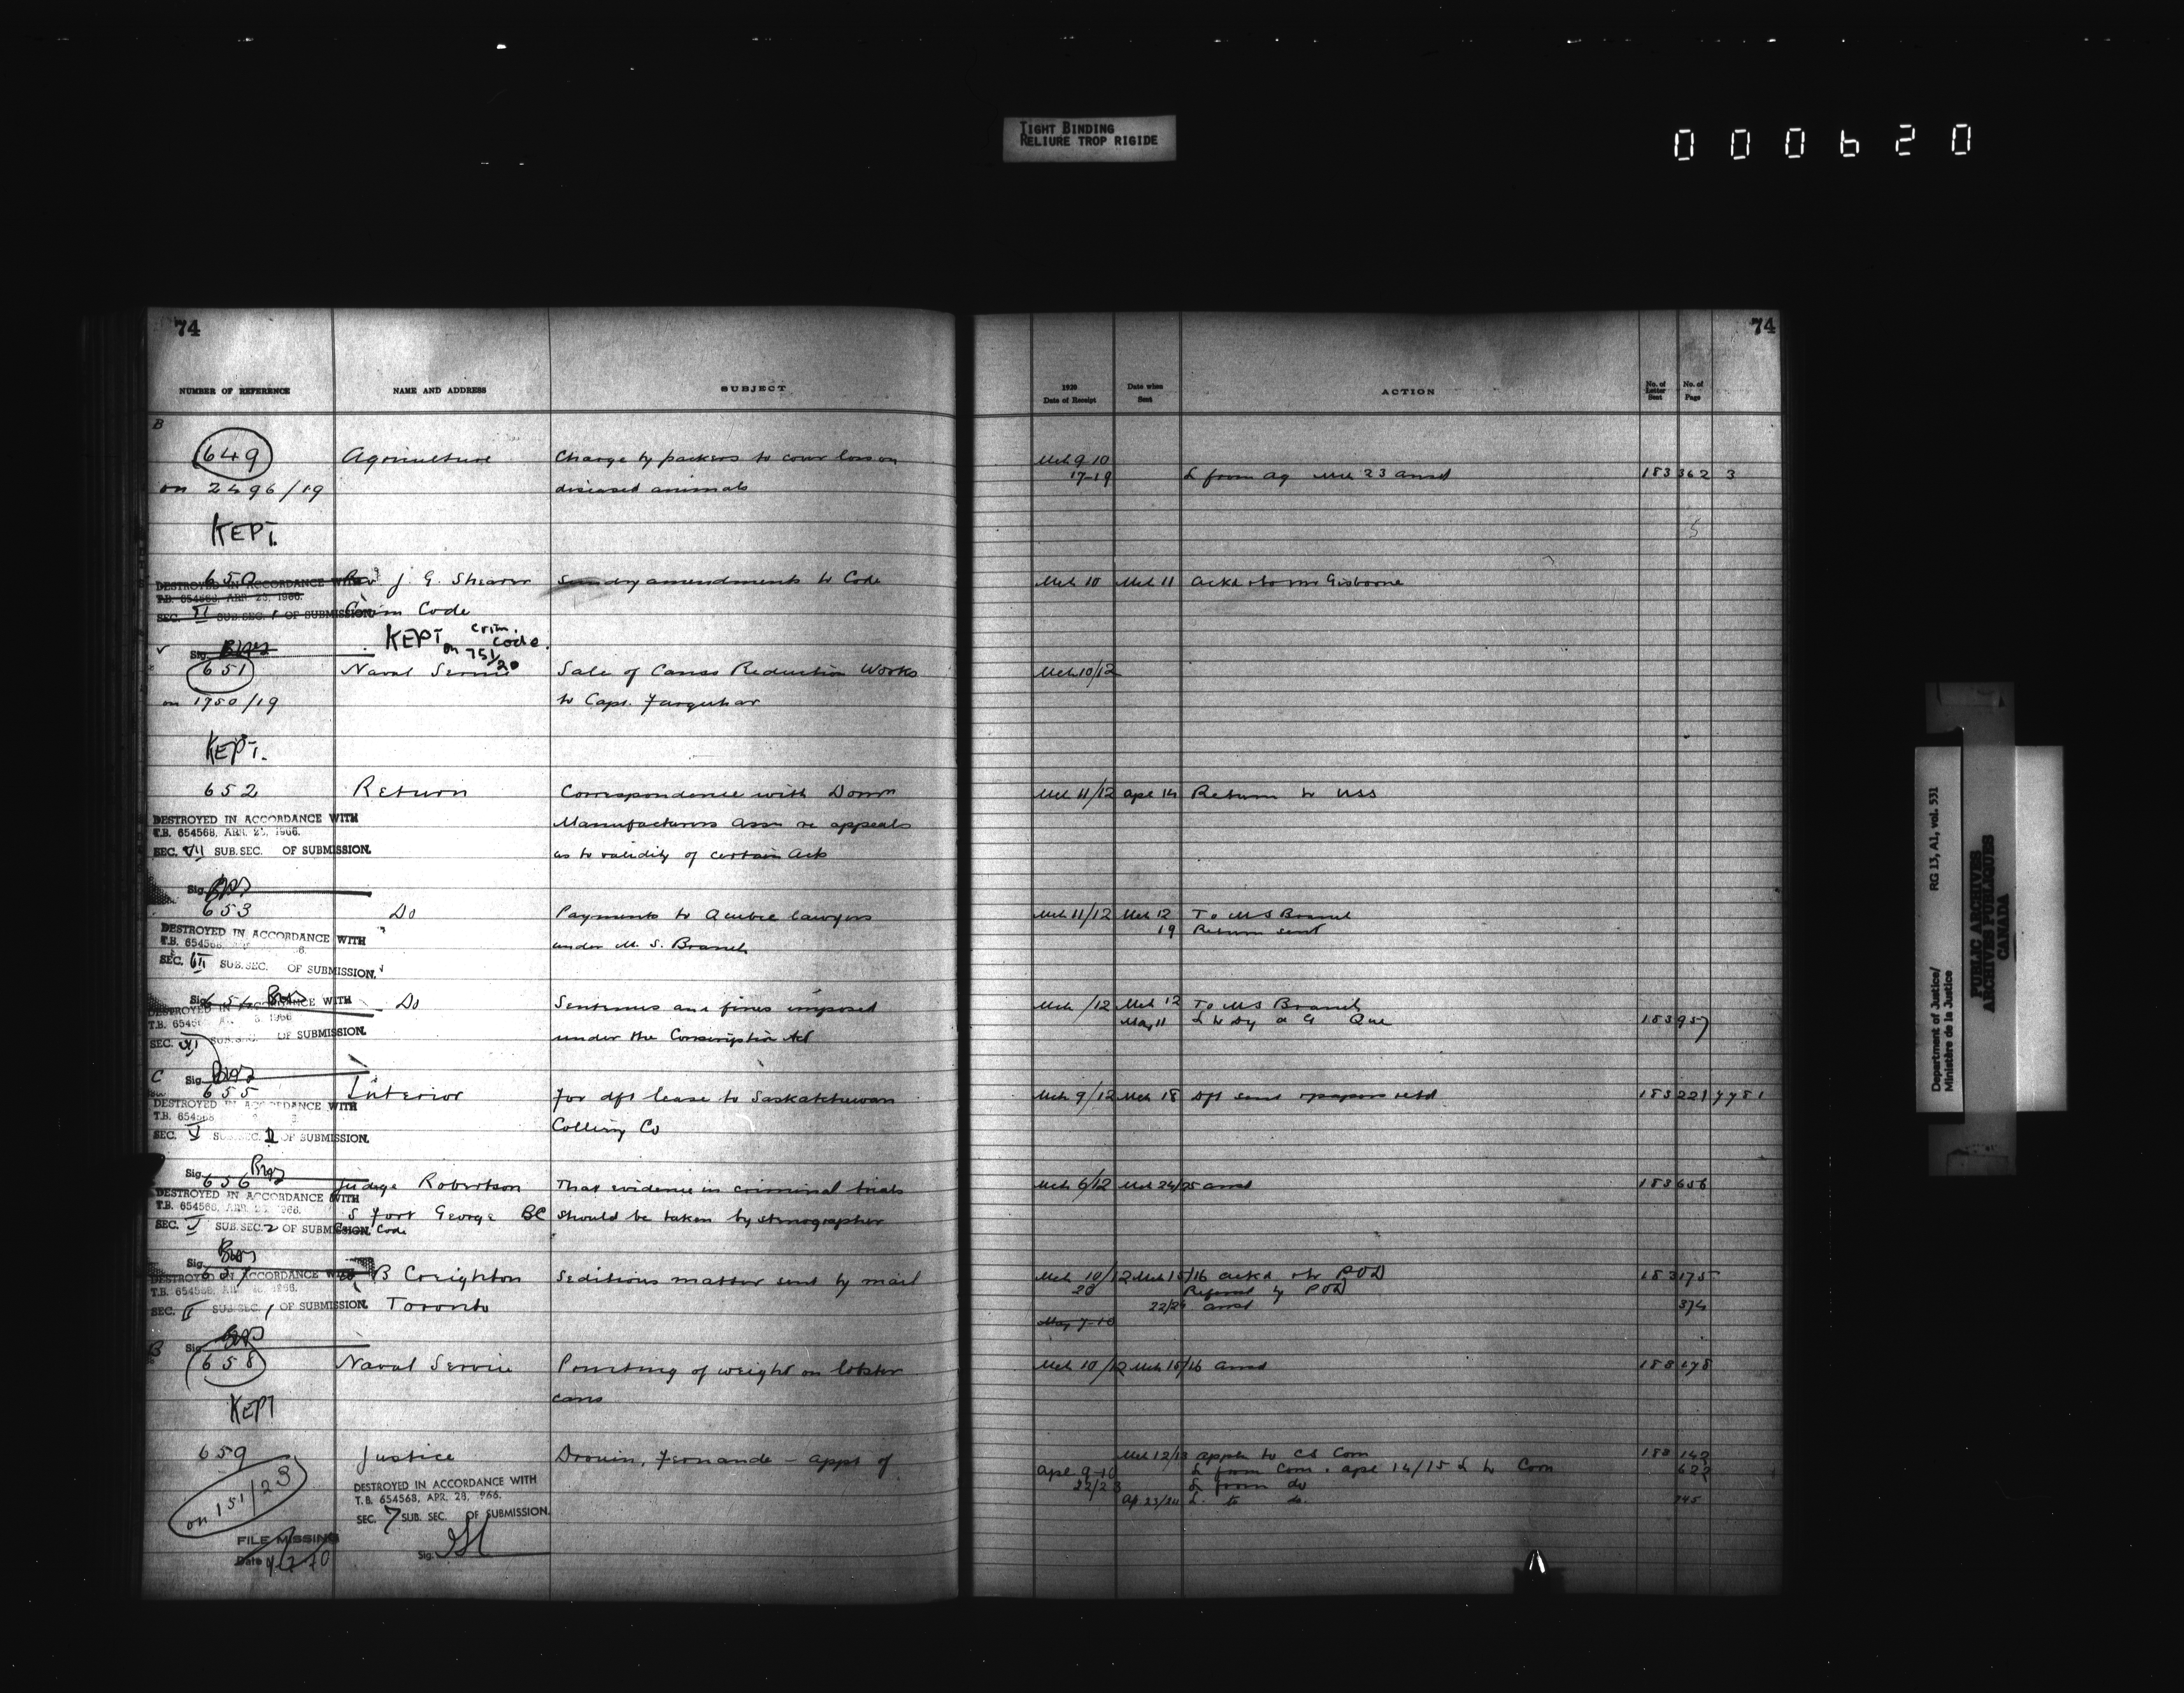 TIGHT BINDING
RELIURE TROP RIGIDE
000620
74
NUMBER OF REFERENCE NAME AND ADDRESS SUBJECT
B
649 Agriculture Charge by packers to cover loss on
on 2496/19 diseased animals
KEPT.
650 Rev J. G. Shearer Sundry amendments to Code
DESTROYED IN ACCORDANCE WITH
T.B. 654568, APR. 28, 1966.
SEC. VI SUB.SEC. 1 OF SUBMISSION.
Crim Code
KEPT on crim. code.
751/20
Sig.
651 Naval Service Sale of Canso Reduction Works
on 1950/19 to Capt. Farquhar
KEPT.
652 Return Correspondence with Domn
DESTROYED IN ACCORDANCE WITH Manufacturers Assn re appeals
T.B. 654568, APR. 28, 1966.
SEC. VII SUB.SEC. OF SUBMISSION. as to validity of certain Acts
Sig.
653 Do Payments to Quebec lawyers
DESTROYED IN ACCORDANCE WITH under M. S. Branch
T.B. 654568
SEC. VII SUB.SEC. OF SUBMISSION.
Sig.
654 Do Sentences and fines imposed
DESTROYED IN ACCORDANCE WITH
T.B. 65456
SEC. VII SUB.SEC. OF SUBMISSION. under the Conscription Act
C Sig.
655 Interior For dft lease to Saskatchewan
DESTROYED IN ACCORDANCE WITH Colliery Co
T.B. 654568
SEC. V SUB.SEC. II OF SUBMISSION.
Sig.
656 Judge Robertson That evidence in criminal trials
DESTROYED IN ACCORDANCE WITH
T.B. 654568, APR. 28, 1966. S Fort George BC should be taken by stenographer
SEC. V SUB.SEC. 2 OF SUBMISSION. Crim. Code
Sig.
657 B Creighton Seditious matter sent by mail
DESTROYED IN ACCORDANCE WITH
T.B. 654568, APR. 28, 1966.
SEC. II SUB.SEC. 1 OF SUBMISSION. Toronto
B Sig.
658 Naval Service Printing of weight on lobster
cans
KEPT
659 Justice Drouin, Fernande - appt of
on 151/23
DESTROYED IN ACCORDANCE WITH
T.B. 654568, APR. 28, 1966.
SEC. 7 SUB. SEC. OF SUBMISSION.
Sig.
FILE MISSING
Date
74
1920 Date of Receipt Date when Sent ACTION No. of Letter Sent No. of Page
Mch 9 10
17-19 L from Ag Mch 23 ansd 183 362 3
5
Mch 10 Mch 11 Ackd & to Mr Gisborne
Mch 10/12
Mch 11/12 Apl 14 Return to USS
Mch 11/12 Mch 12 To M S Branch
19 Return sent
Mch /12 Mch 12 To M S Branch
May 11 L to Dy A G Que 183 957
Mch 9/12 Mch 18 Dft sent & papers retd 183 221 7781
Mch 6/12 Mch 24/25 ansd 183 656
Mch 10/12 Mch 15/16 ackd & to POD 183 175
20 Referred by POD
22/24 ansd 374
May 7-10
Mch 10/12 Mch 15/16 ansd 183 178
Mch 12/13 appln to CS Com 183 142
Apl 9-10 L from Com. Apl 14/15 L to Com 622
22/23 L from do
Ap 23/24 L. to do. 745
Department of Justice/
Ministère de la Justice
RG 13, A1, vol. 531
PUBLIC ARCHIVES
ARCHIVES PUBLIQUES
CANADA